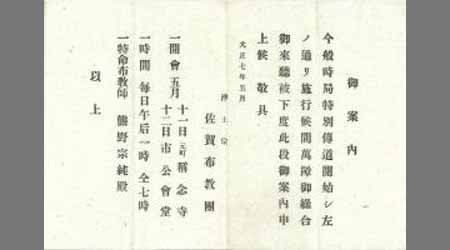 御案内
今般時局特別傳道開始シ左
ノ通リ施行候間萬障御繰合
御來聽被下度此段御案内申
上候 敬具
大正七年五月
浄土宗
佐賀布教團
一開會五月 十一日元町稱念寺
十二日市公會堂
一時間 毎日午后一時 仝七時
一特命布教師 熊野宗純殿
以上